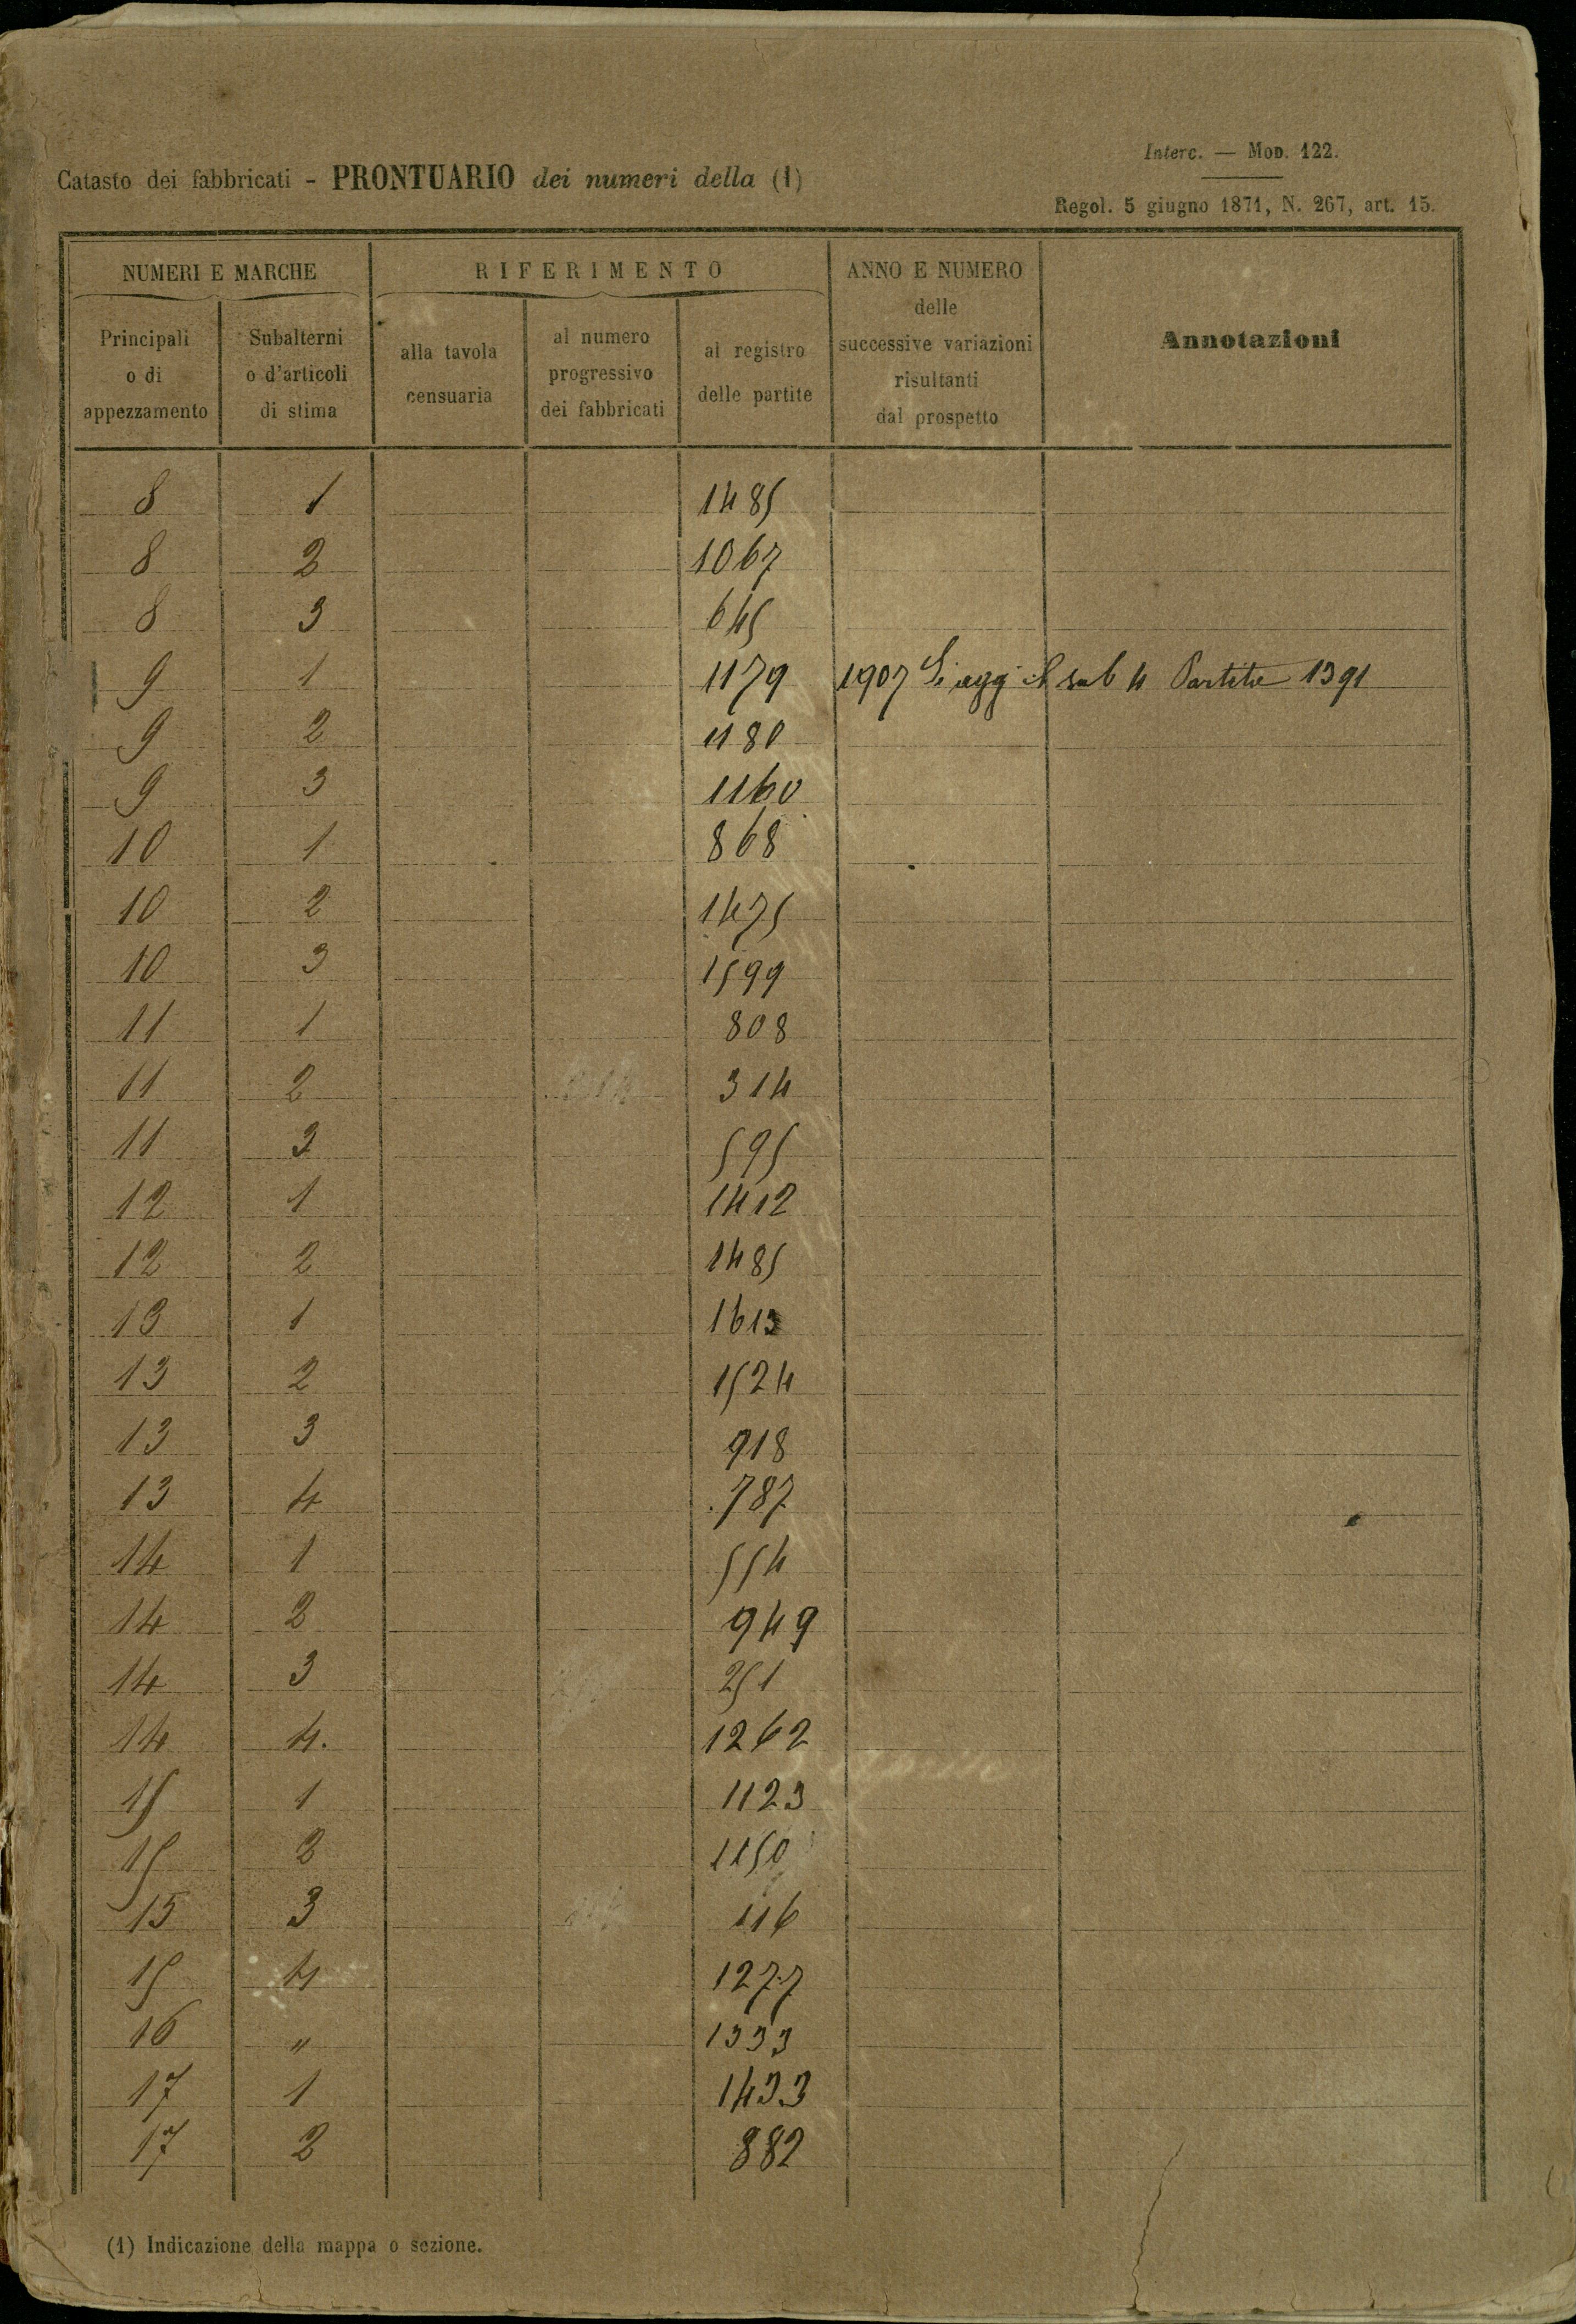 Interc. — Mod. 122.
Catasto dei fabbricati - PRONTUARIO dei numeri della (1)
Regol. 5 giugno 1871, N. 267, art. 15.
NUMERI E MARCHE RIFERIMENTO ANNO E NUMERO delle successive variazioni risultanti dal prospetto Annotazioni
Principali o di appezzamento Subalterni o d'articoli di stima alla tavola censuaria al numero progressivo dei fabbricati al registro delle partite
8 1 1485
8 2 1067
8 3 645
9 1 1179 1907 Si agg il sub 4 Partita 1391
9 2 1180
9 3 1160
10 1 868
10 2 1475
10 3 1599
11 1 808
11 2 314
11 3 595
12 1 1412
12 2 1485
13 1 1613
13 2 1524
13 3 918
13 4 787
14 1 554
14 2 949
14 3 251
14 4. 1262
15 1 1123
15 2 1150
15 3 116
15 4 1277
16 " 1333
17 1 1433
17 2 882
(1) Indicazione della mappa o sezione.